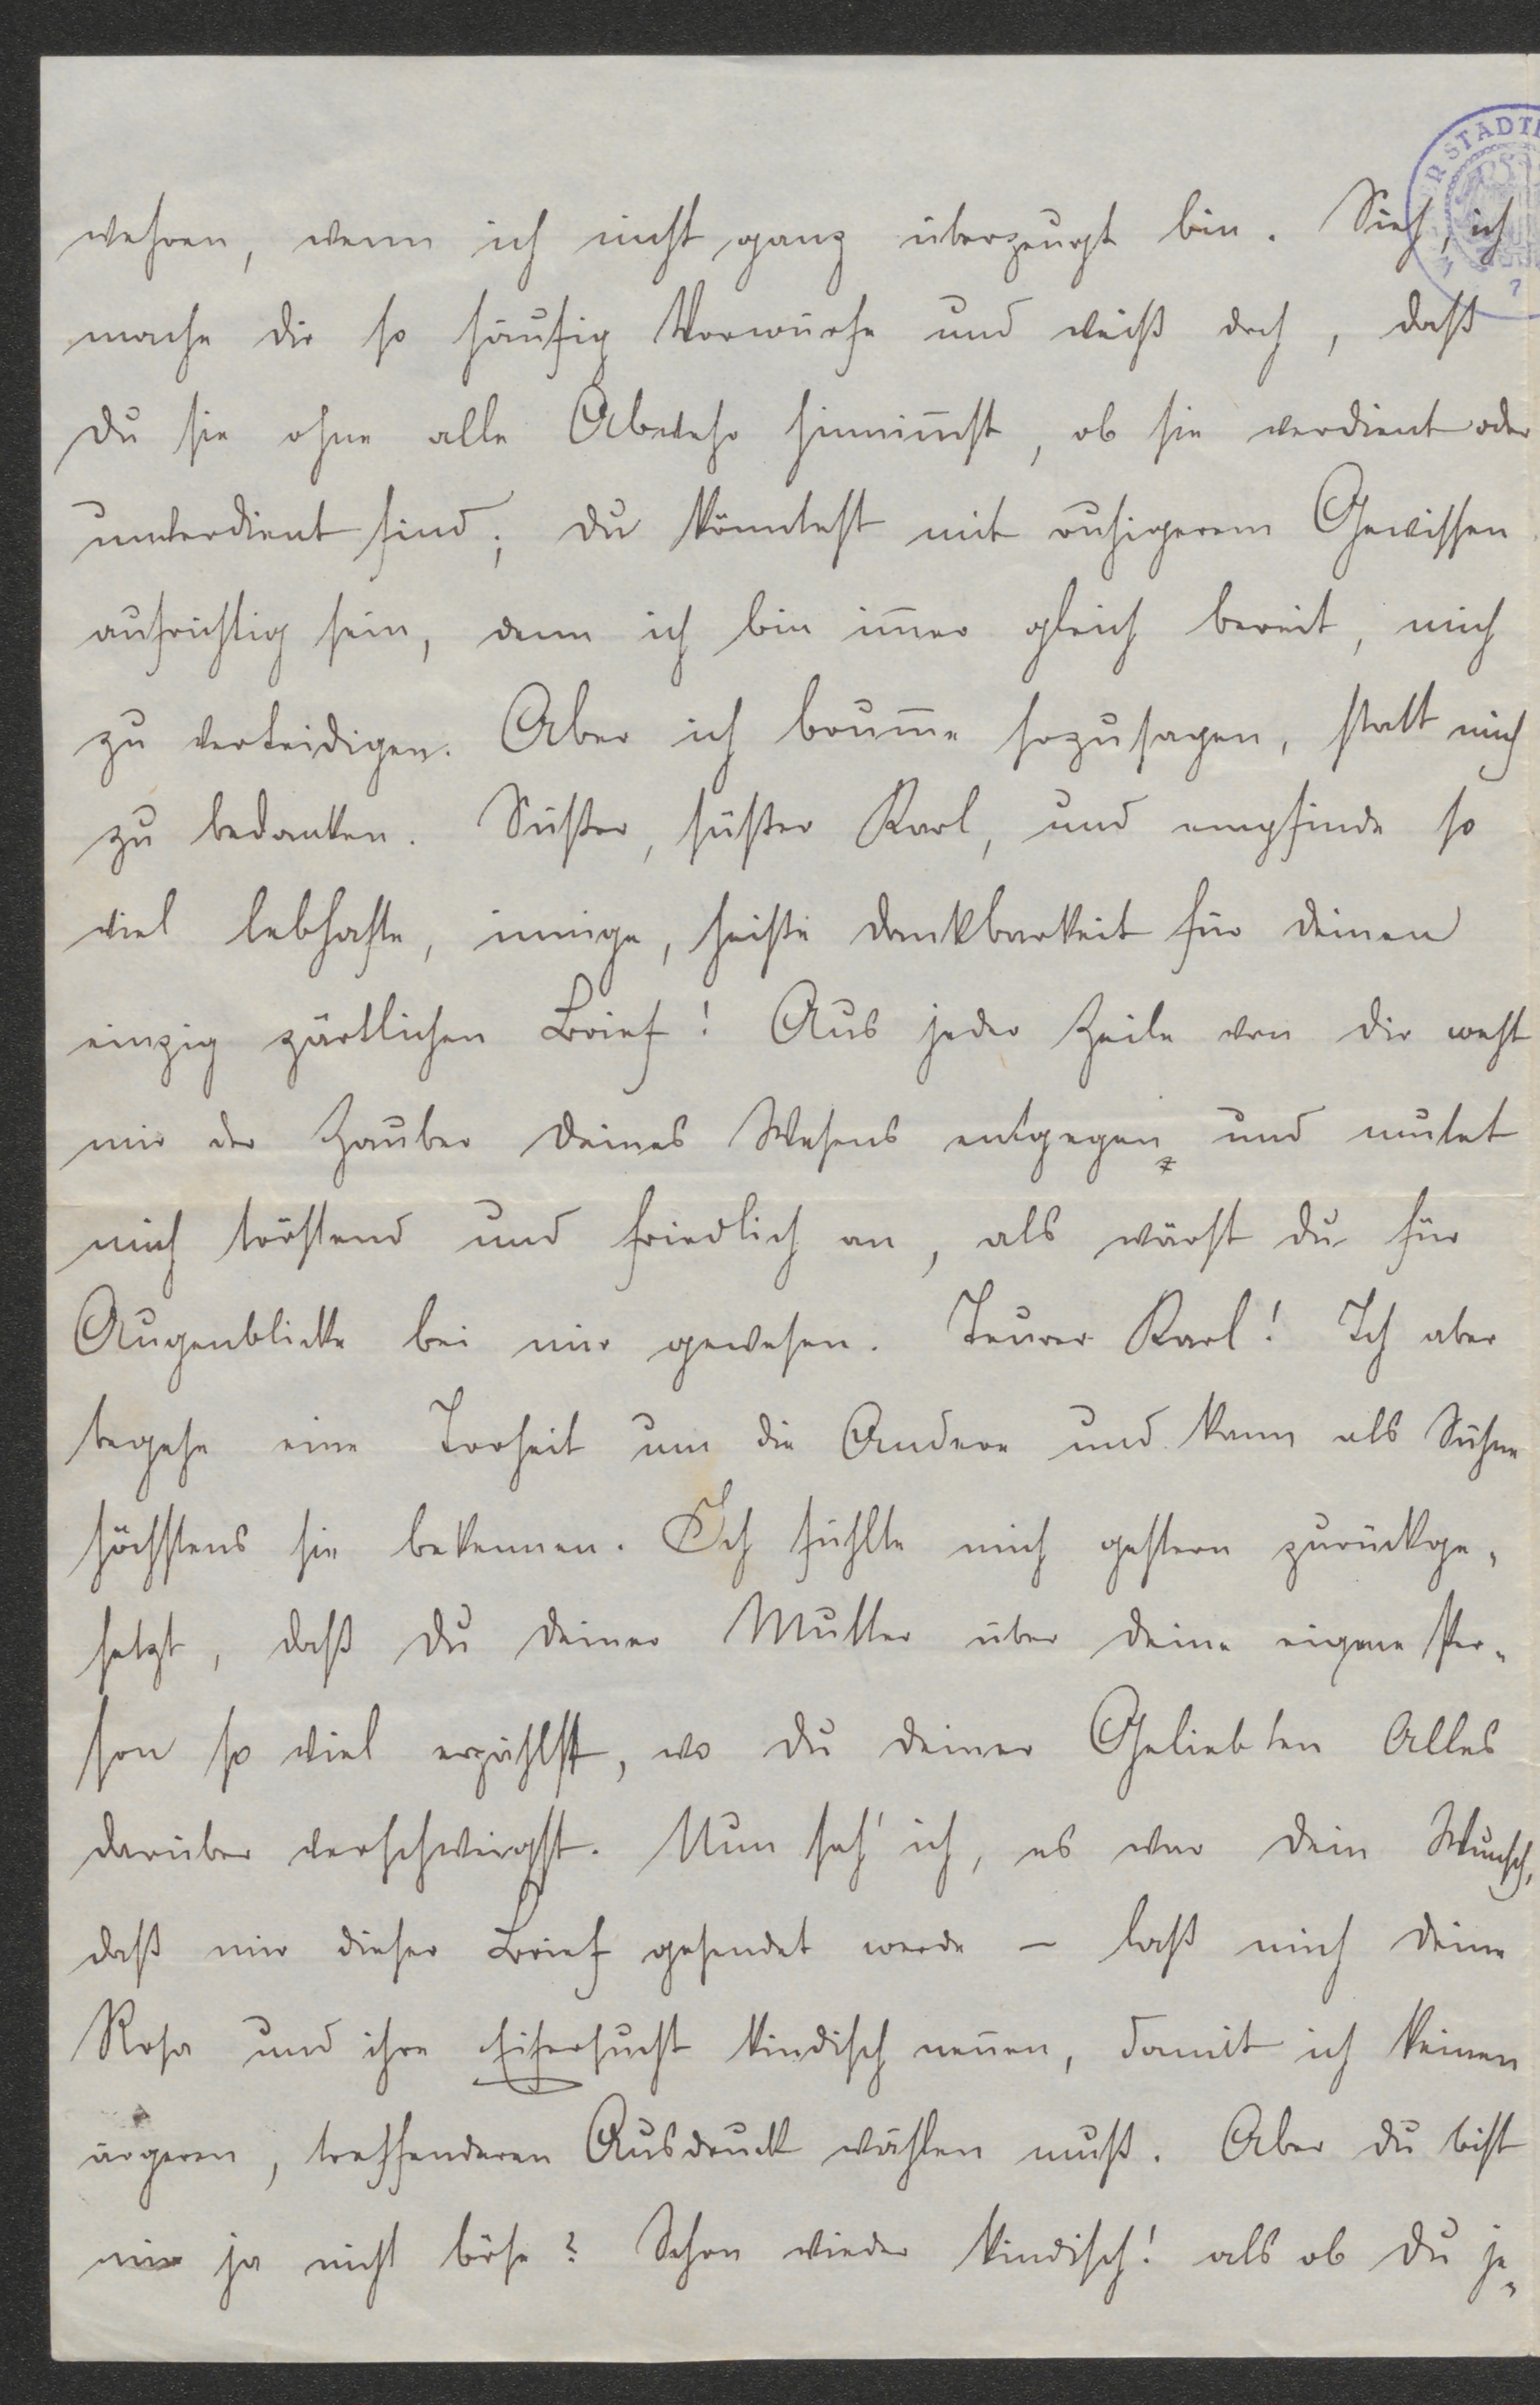 STADT
wehren, wenn ich nicht ganz überzeugt bin. Sieh, ich
mache dir so häufig Vorwürfe und weiß doch, daß
du sie ohne alle Abwehr hinnim̅st, ob sie verdient oder
unverdient sind; du könntest mit ruhigerem Gewissen
aufrichtig sein, denn ich bin im̅er gleich bereit, mich
zu verteidigen. Aber ich brum̅e sozusagen, statt mich
zu bedanken. Süßer, süßer Karl, und empfinde so
viel lebhafte, innige, heiße Dankbarkeit für deinen
einzig zärtlichen Brief! Aus jeder Zeile von dir weht
mir der Zauber deines Wesens entgegen und mutet
mich tröstend und friedlich an, als wärst du für
Augenblicke bei mir gewesen. Teurer Karl! Ich aber
begehe eine Torheit um die Andere und kann als Sühne
höchstens sie bekennen. Ich fühlte mich gestern zurückge-
setzt, daß du deiner Mutter über deine eigene Per-
son so viel erzählst, wo du deiner Geliebten Alles
darüber verschweigst. Nun seh' ich, es war dein Wunsch,
daß mir dieser Brief gesendet werde – laß mich deine
Rosa und ihre Eifersucht kindisch nen̅en, damit ich keinen
ärgeren, treffenderen Ausdruck wählen muß. Aber du bist
mir ja nicht böse? Schon wieder kindisch! als ob du je-